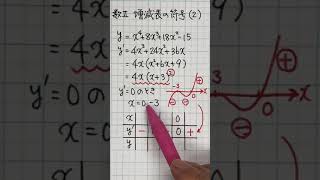 数Ⅱ 増減表の符号(2)
y=x⁴+8x³+18x²-15
y'=4x³+24x²+36x
=4x(x²+6x+9)
=4x(x+3)²
y'=0のとき
x=0,-3
-3 0 x
⊖ ⊖ ⊕
x 0
y' - 0 +
y